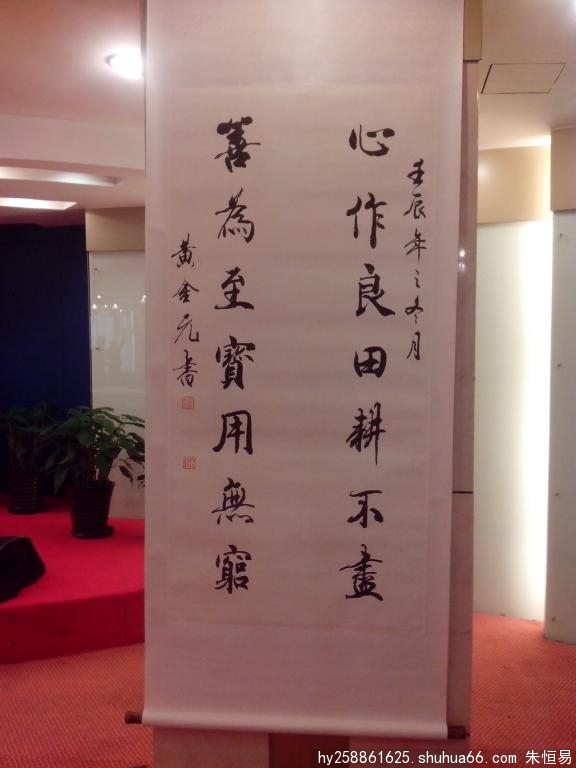 壬辰年之冬月
心作良田耕不盡
善為至寶用無窮
黄金元書
hy258861625.shuhua66.com 朱恒易